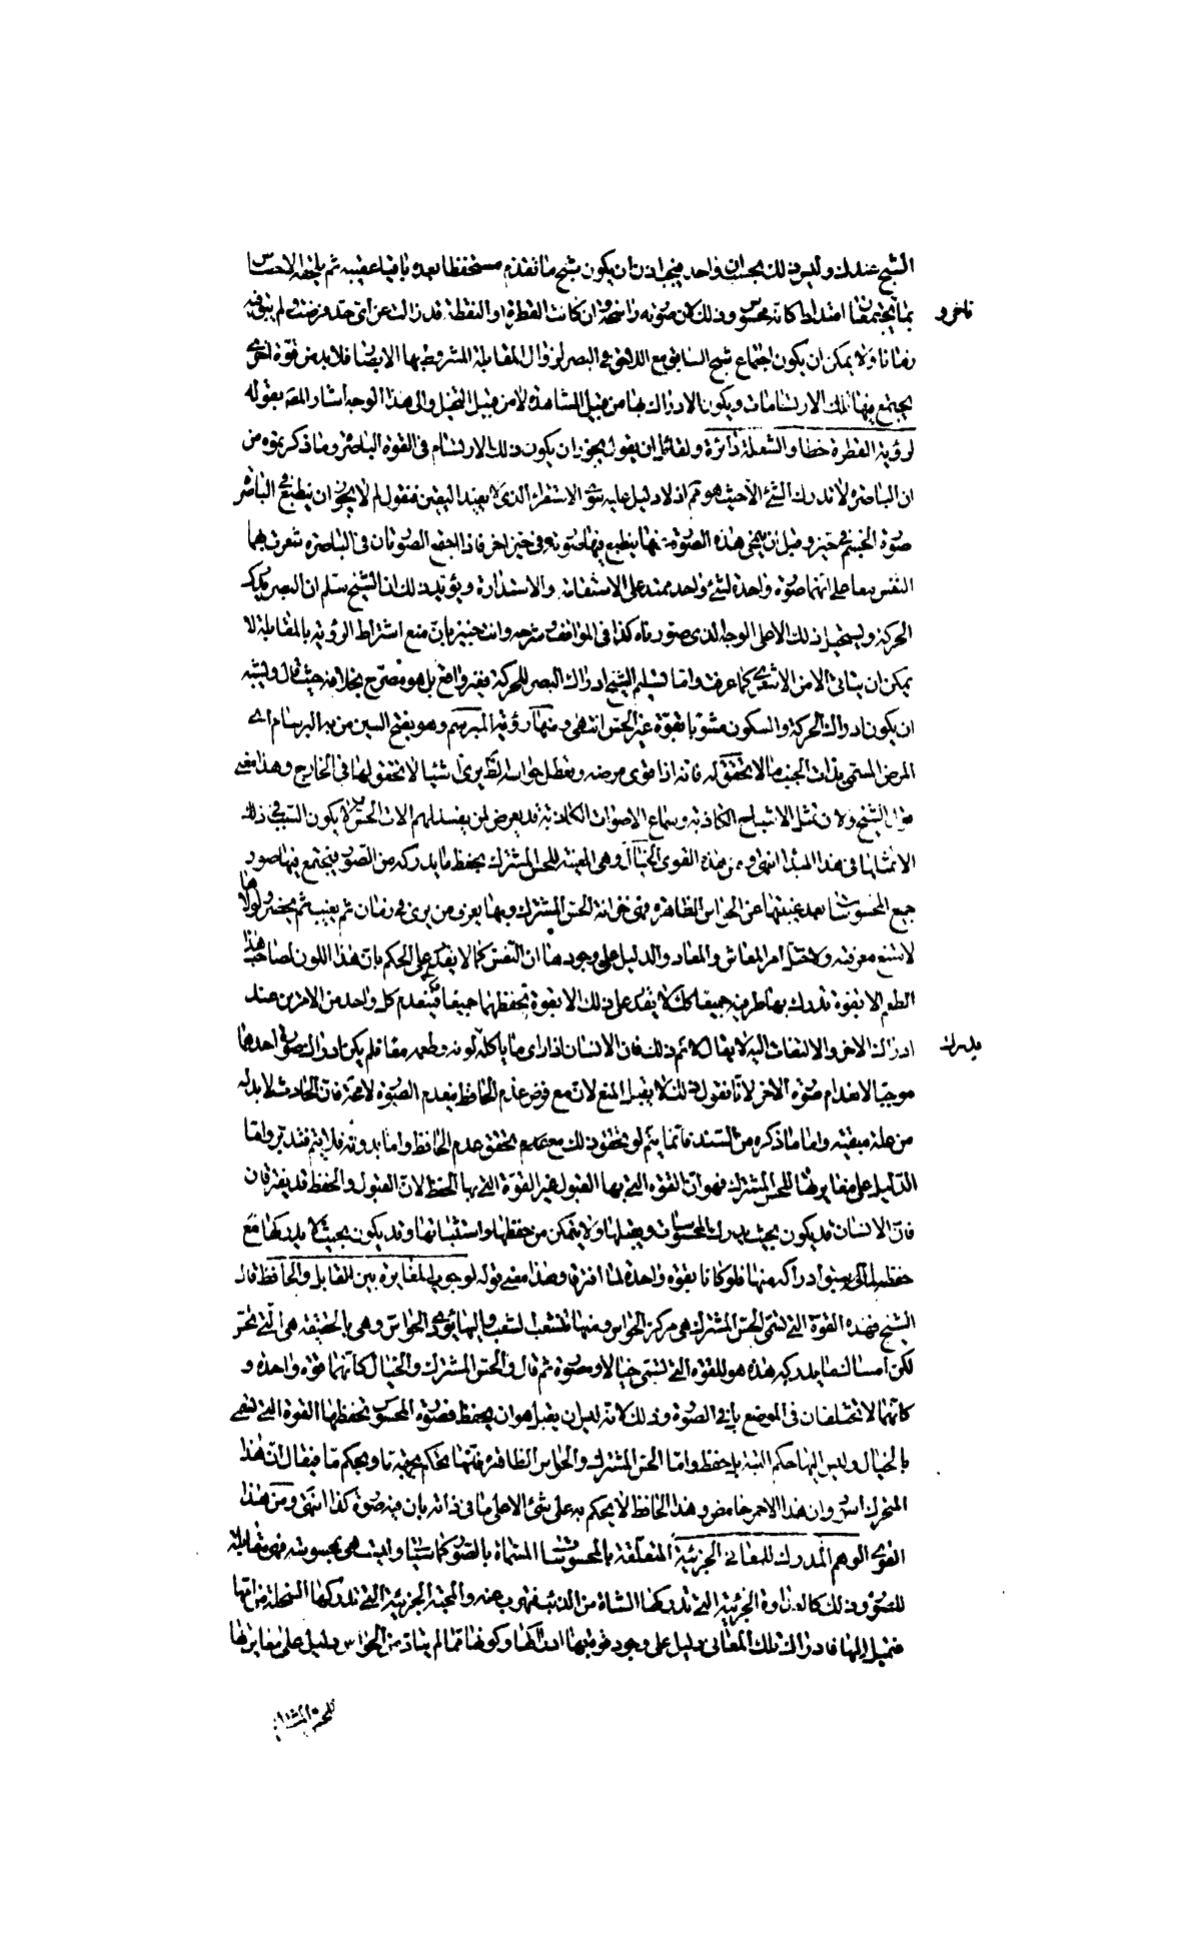 الشبح عندك وليس ذلك بحسبان واحد فيجب اذن ان يكون شبح ما تقدم مستحفظا بعده باقيا عقيبه ثم يلحقه الاحساس
بما فيجتمعان امتدادا كانه محسوس وذلك لان صورته راسخة وان كانت القطرة او النقطة قد زالت عن اى حد فرضت لم تبق فيه
تاخر و
زمانا ولا يمكن ان يكون اجتماع شبح السابق مع اللاحق فى البصر لزوال المقابلة المشروط بها الابصار فلا بد من قوة اخرى
يجتمع فيها تلك الارتسامات ويكون الادراك بها من قبيل المشاهدة لا من قبيل التخيل والى هذا الوجه اشار المصه بقوله
لرؤية القطرة خطا والشعلة دائرة ولقائل ان يقول يجوز ان يكون ذلك الارتسام فى القوة الباصرة وما ذكرتموه من
ان الباصرة لا تدرك الشئ الا حيث هو ثم اذ لا دليل عليه سوى الاستقراء الذى لا يفيد اليقين فنقول لم لا يجوز ان ينطبع فى الباصرة
صورة الجسم فى حيز وقبل ان يمحى هذه الصورة عنها ينطبع فيها صورته فى حيز اخر فاذا اجتمع الصورتان فى الباصرة شعرت بهما
النفس معا على انهما صورة واحدة لشئ واحد ممتد على الاستقامة والاستدارة ويؤيد ذلك ان الشيخ سلم ان البصر يدرك
الحركة ويستحيل ذلك الا على الوجه الذى صورناه كذا فى المواقف وشرحه وانت خبير بان منع اشتراط الرؤية بالمقابلة لا
يمكن ان يتاتى الا من الاشعرى كما عرفت واما تسليم الشيخ ادراك البصر للحركة فغير واقع بل هو مصرح بخلافه حيث قال ويشبه
ان يكون ادراك الحركة والسكون مشوبا بقوة غير الحس انتهى ومنها رؤية المبرسم وهو بفتح السين من به البرسام اى
المرض المسمى بذات الجنب ما لا تحقق له فانه اذا قوى مرضه وتعطل حواسه الظاهرة يرى اشياء لا تحقق لها فى الخارج وهذا معنى
قول الشيخ ولان تمثل الاشباح الكاذبة وسماع الاصوات الكاذبة قد يعرض لمن يفسد لهم الات الحس لا يكون السبب فى ذلك
الا تمثلها فى هذا المبدا انتهى ومن هذه القوى الخيال وهى المعينة للحس المشترك بحفظ ما يدركه من الصور فيجتمع فيها صور
جميع المحسوسات بعد غيبتها عن الحواس الظاهرة فهى خزانة الحس المشترك وبها يعرف من يرى فى زمان ثم يغيب ثم يحضر ولولاها
لامتنع معرفته ولاختل امر المعاش والمعاد والدليل على وجودها ان النفس كما لا يقدر على الحكم بان هذا اللون لصاحب هذا
الطعم الا بقوة تدرك بها طرفيه جميعا كك لا يقدر على ذلك الا بقوة تحفظهما جميعا فينعدم كل واحد من الامرين عند
ادراك الاخر والالتفات اليه لا يقال لا ثم ذلك فان الانسان اذا راى ما ياكله لونه وطعمه معا فلم يكن ادراك صورة احدهما
يدرك
موجبا لانعدام صورة الاخر لانا نقول ذلك لا يقبل المنع لان مع فرض عدم الحافظ ينعدم الصورة لا محة فان الحادث لا بد له
من علة مبقية واما ما ذكره من السند فانما يتم لو تحقق ذلك مع عدم تحقق عدم الحافظ واما بدونه فلا يتم فتدبر واما
الدليل على مغايرتها للحس المشترك فهو ان القوة التى بها القبول غير القوة التى بها الحفظ لان القبول والحفظ قد يفترقان
فان الانسان قد يكون بحيث يدرك المحسوسات ويقبلها ولا يتمكن من حفظها واستثباتها وقد يكون بحيث لا يدركها مع
حفظه لما سبق ادراكه منها فلو كانا بقوة واحدة لما افترقا وهذا معنى قوله لوجوب المغايرة بين القابل والحافظ قال
الشيخ فهذه القوة التى تسمى الحس المشترك هى مركز الحواس ومنها تتشعب الشعب واليها يؤدى الحواس وهى بالحقيقة هى التى تحس
لكن امساك ما يدركه هذه هو للقوة التى تسمى خيالا ومصورة ثم قال والحس المشترك والخيال كانهما قوة واحدة و
كانهما لا تختلفان فى الموضع بل فى الصورة وذلك لانه ليس ان يقبل هو ان يحفظ فصورة المحسوس تحفظها القوة التى تسمى
بالخيال وليس اليها حكم البتة بل حفظ واما الحس المشترك والحواس الظاهرة فانها تحكم بجهة ما وبحكم ما فيقال ان هذا
المتحرك اسود وان هذا الاحمر حامض وهذا الحافظ لا يحكم به على شئ الا على ما فى ذاته بان فيه صورة كذا انتهى ومن هذه
القوى الوهم المدرك للمعانى الجزئية المتعلقة بالمحسوسات المسماة بالصور كما سبق او ليست هى بمحسوسة فهى مقابلة
للصور وذلك كالعداوة الجزئية التى تدركها الشاة من الذئب فتهرب عنه والمحبة الجزئية التى تدركها السخلة من امها
فتميل اليها فادراك تلك المعانى دليل على وجود قوة بها ادراكها وكونها مما لم يتاد من الحواس دليل على مغايرتها
للحس المشترك